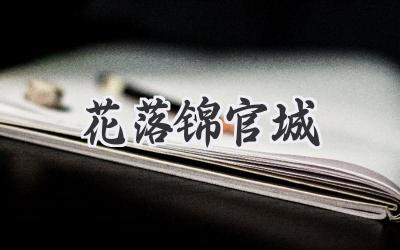 花落锦官城